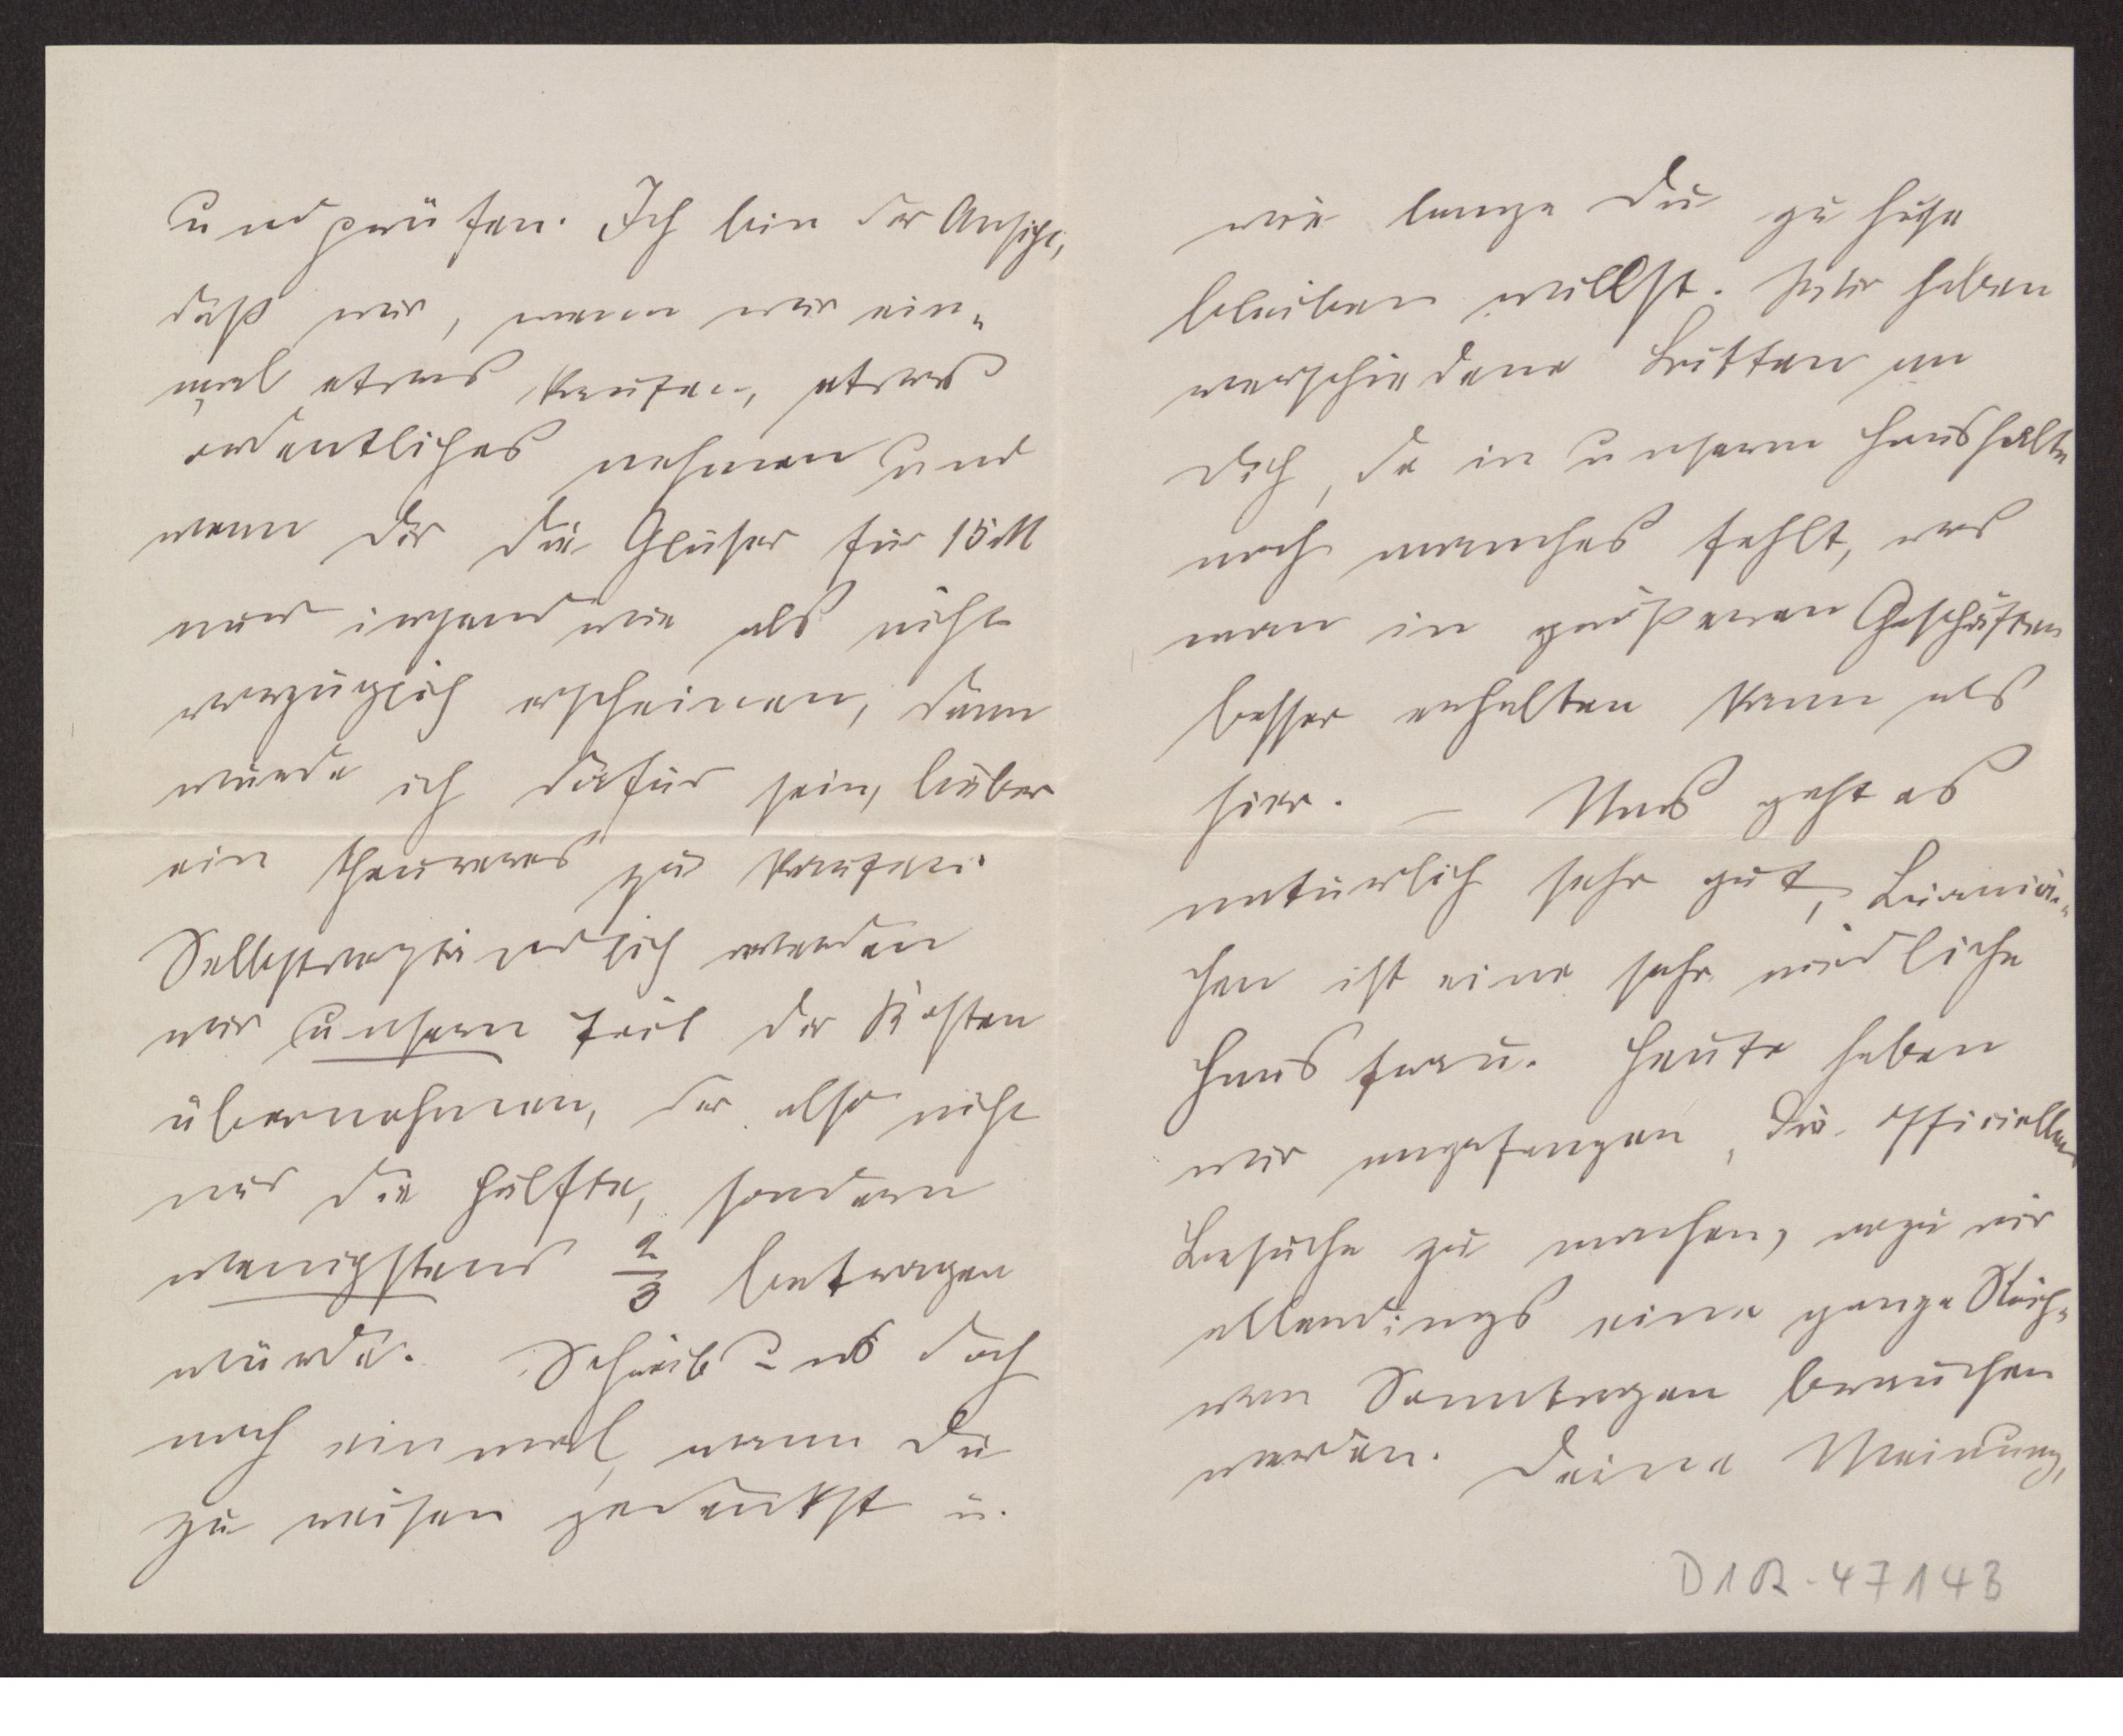 und prüfen. Ich bin der Ansicht,
daß wir, wenn wir ein-
mal etwas kaufen, etwas
ordentliches nehmen und
wenn Dir die Gläser für 15 M
nur irgendwie als nicht
vorzüglich erscheinen, dann
würde ich dafür sein, lieber
ein theureres zu kaufen.
Selbstverständlich werden
wir unsern Teil der Kosten
übernehmen, der also nicht
nur die Hälfte, sondern
wenigstens 2/3 betragen
würde. Schreib uns doch
noch einmal, wann Du
zu reisen gedenkst u.
wie lange Du zu Hause
bleiben willst. Wir haben
verschiedene Bitten an
Dich, da in unserm Haushalte
noch manches fehlt, was
man in größeren Geschäften
besser erhalten kann als
hier. — Uns geht es
natürlich sehr gut,
chen ist eine sehr niedliche
Hausfrau. Heute haben
wir angefangen, die officiellen
Besuche zu machen, wozu wir
allerdings eine ganze Reihe
von Sonntagen brauchen
werden. Deine Meinung,
D1A-47143